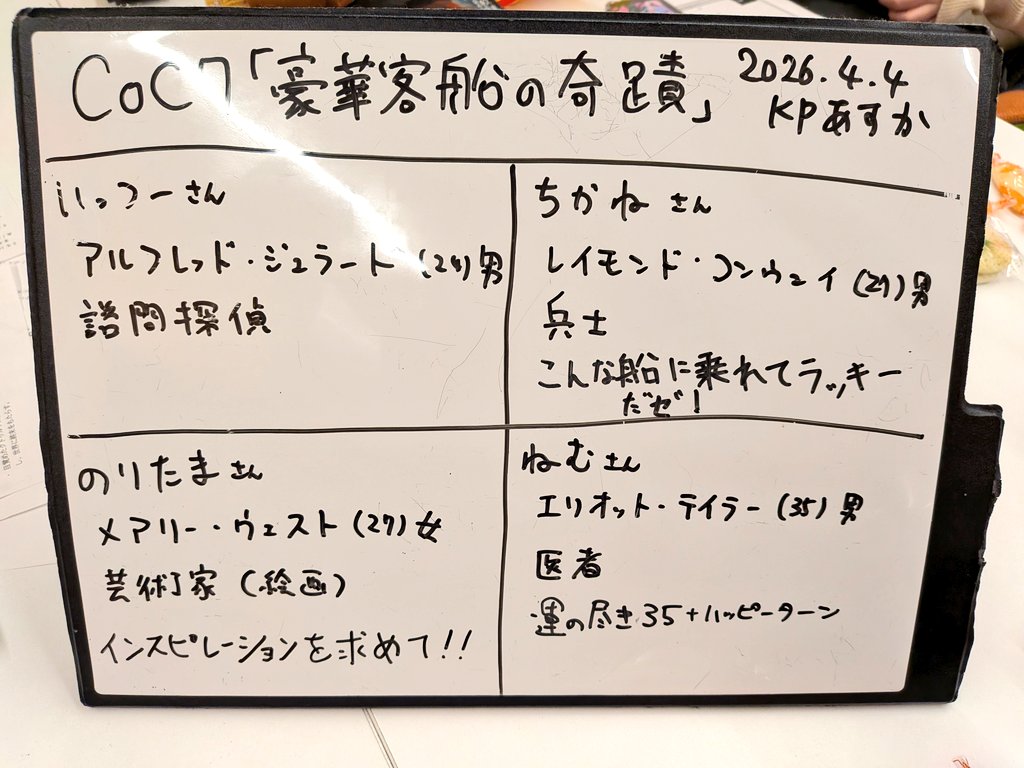 CoC7「豪華客船の奇蹟」
2026.4.4
KPあすか
いっつーさん
アルフレッド・ジェラート (24)男
諮問探偵
ちかねさん
レイモンド・コンウェイ (29)男
兵士
こんな船に乗れてラッキー
だぜ!
のりたまさん
メアリー・ウェスト(27)女
芸術家(絵画)
インスピレーションを求めて!!
ねむさん
エリオット・テイラー (35)男
医者
運の尽き35+ハッピーターン